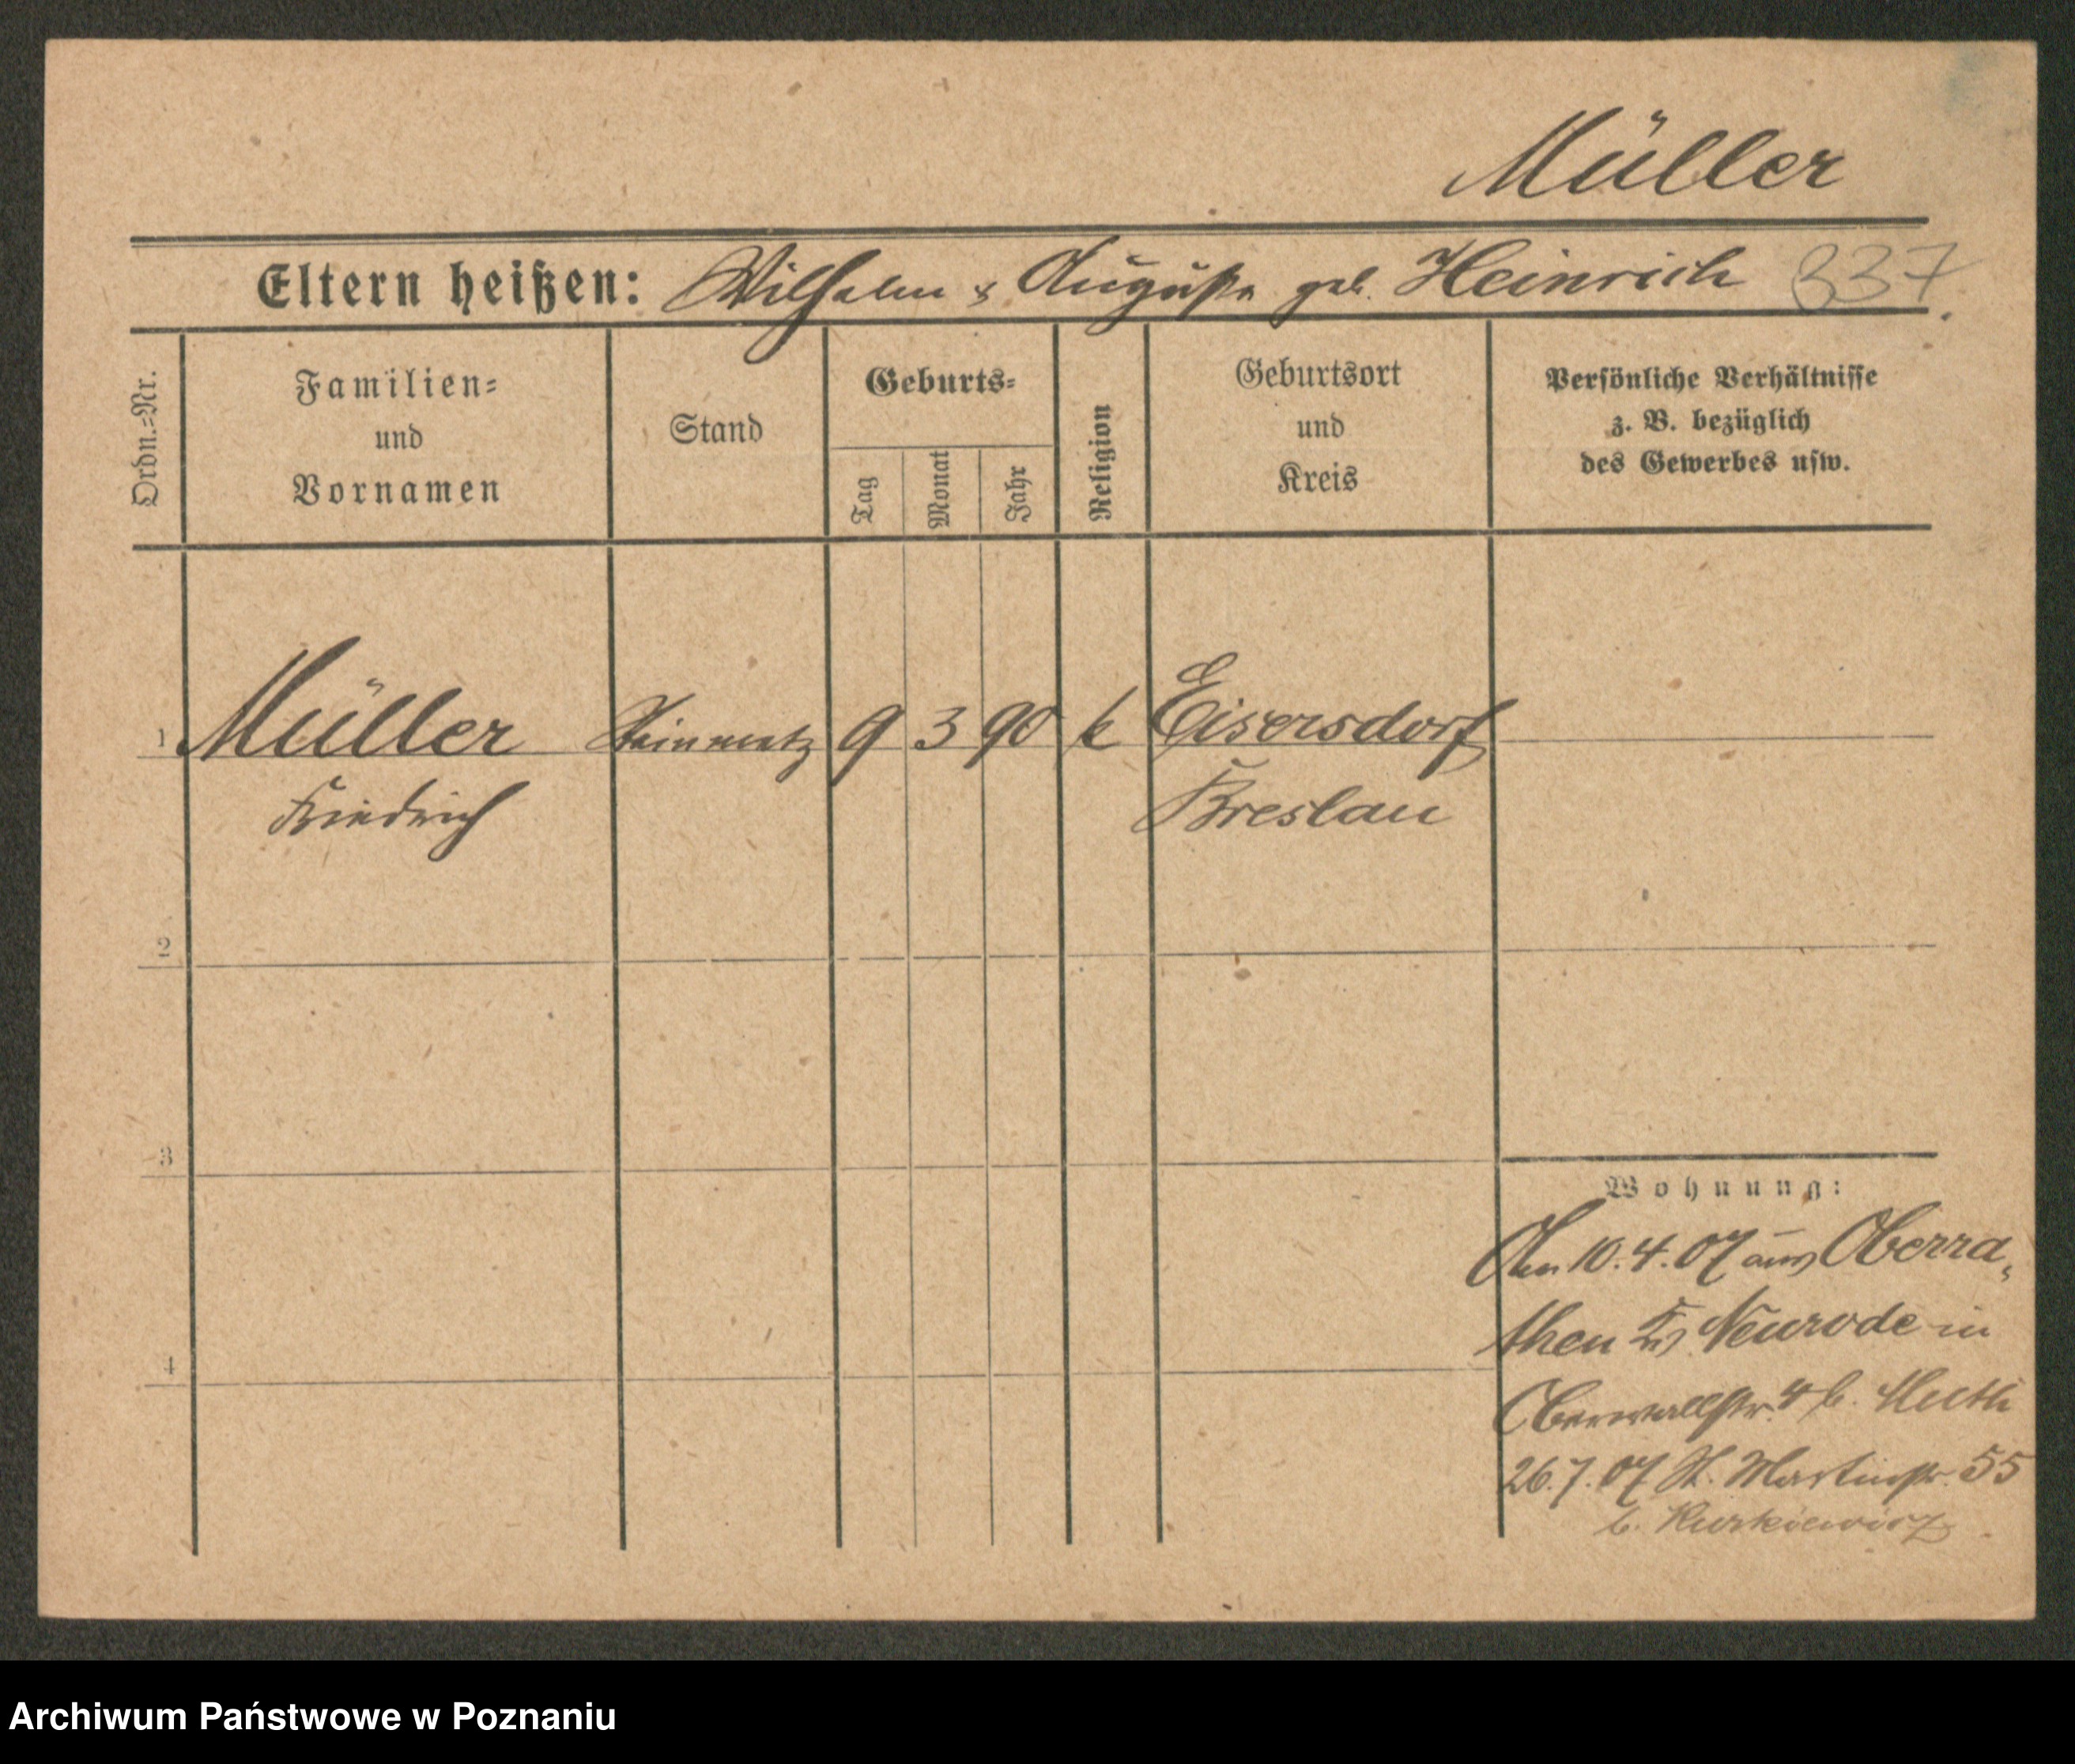 Müller
Eltern heißen: Wilhelm & Auguste geb. Heinrich 337
Ordn.-Nr.
Familien-
und
Vornamen
Stand
Geburts-
Tag
Monat
Jahr
Religion
Geburtsort
und
Kreis
Persönliche Verhältnisse
z. B. bezüglich
des Gewerbes usw.
1 Müller Steinmetz 9 3 90 k Eisersdorf
Friedrich Breslau
2
3
4
Wohnung:
Am 10.4.07 aus Oberra-
then Kr. Neurode in
Oberwallstr. 4 b. Muth
26.7.07 St. Martinstr. 55
b. Kurkiewicz
Archiwum Państwowe w Poznaniu